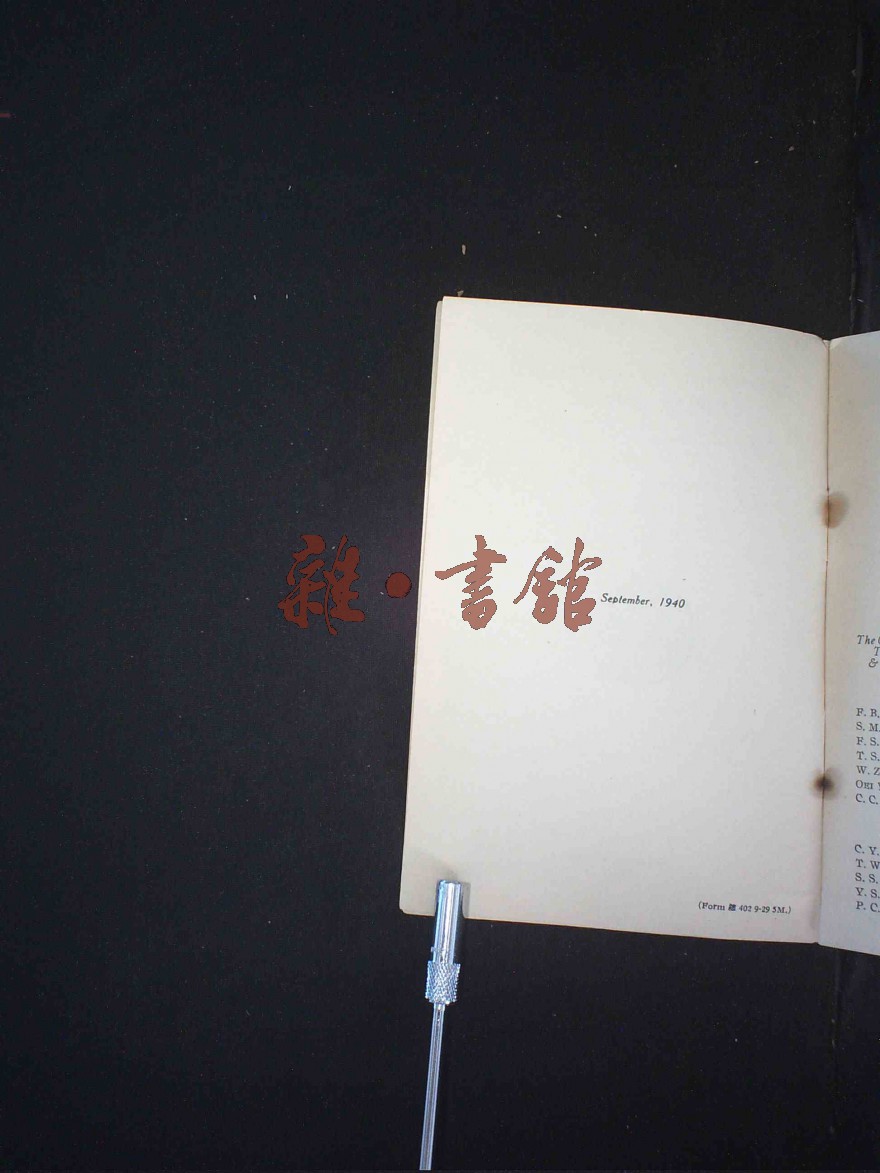 雜·書館
September, 1940
(Form 402 9-29 5M.)
The
&
F. R.
S. M.
F. S.
T. S.
W. Z
C. C.
C. Y.
T. W
S. S.
Y. S.
P. C.